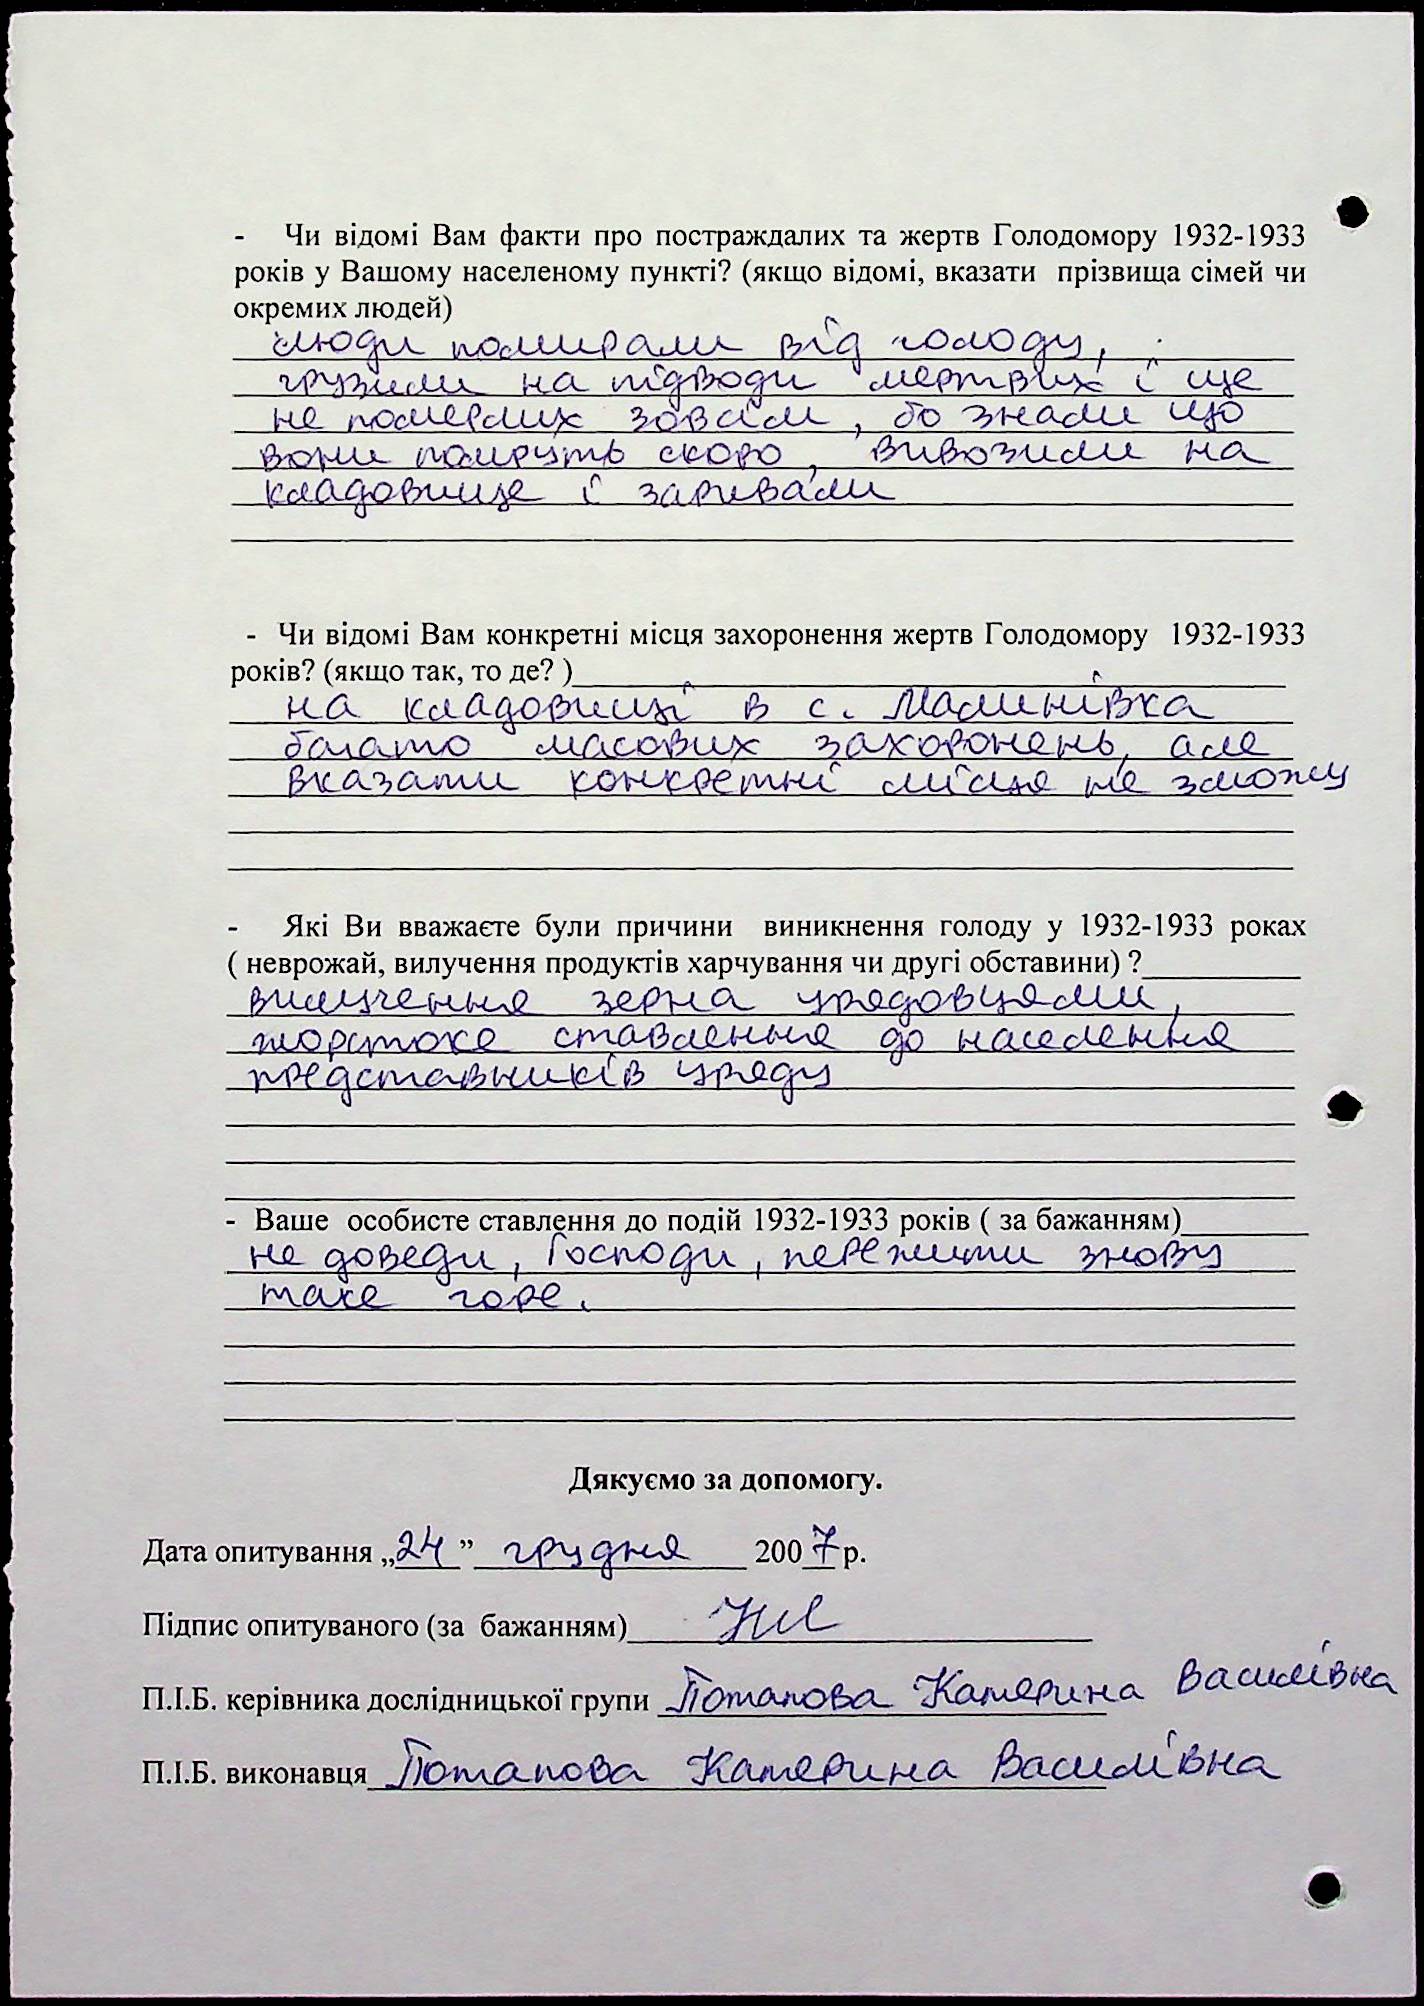 - Чи відомі Вам факти про постраждалих та жертв Голодомору 1932-1933
років у Вашому населеному пункті? (якщо відомі, вказати прізвища сімей чи
окремих людей)
люди помирали від голоду,
грузили на підводи мертвих і ще
не померлих зовсім, бо знали що
вони помруть скоро, вивозили на
кладовище і заривали
- Чи відомі Вам конкретні місця захоронення жертв Голодомору 1932-1933
років? (якщо так, то де? )
на кладовищі в с. Малинівка
багато масових захоронень, але
вказати конкретні місця не зможу
- Які Ви вважаєте були причини виникнення голоду у 1932-1933 роках
( неврожай, вилучення продуктів харчування чи другі обставини) ?
вилучення зерна урядовцями,
жорстоке ставлення до населення
представників уряду
- Ваше особисте ставлення до подій 1932-1933 років ( за бажанням)
не доведи, Господи, пережити знову
таке горе.
Дякуємо за допомогу.
Дата опитування „24” грудня 2007 р.
Підпис опитуваного (за бажанням)
П.І.Б. керівника дослідницької групи Потапова Катерина Василівна
П.І.Б. виконавця Потапова Катерина Василівна